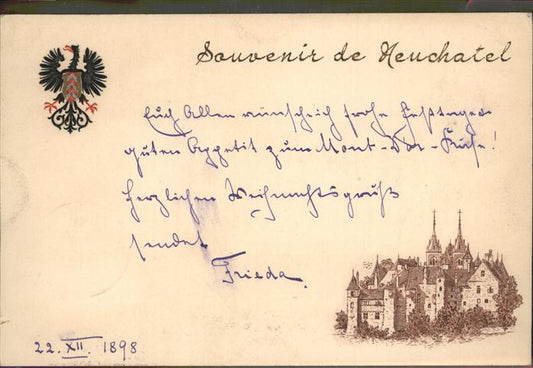 Souvenir de Neuchatel
Euch Allen wünsche ich frohe Festtage &
guten Appetit zum Mont-d'Or-Käse!
Herzlichen Weihnachtsgruß
sendet
Frieda.
22. XII. 1898